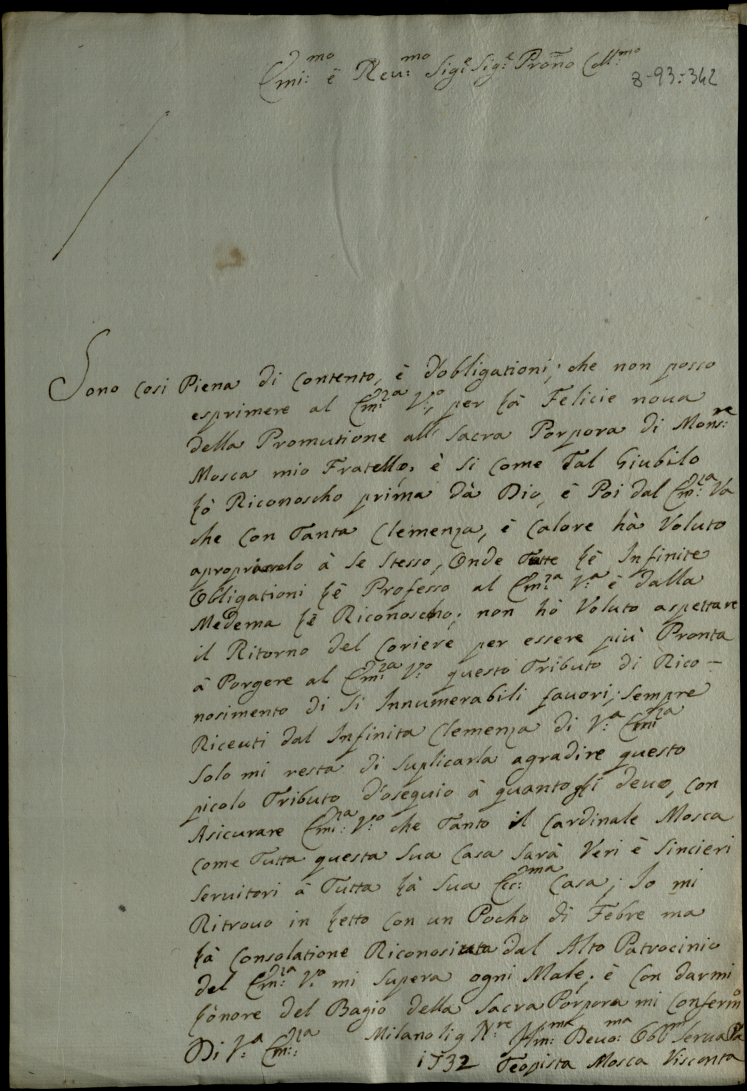 Emi:mo è Reu:mo Sigr Sigr Prone Coll:mo
8-93-342
Sono così Piena di Contento, è d'obligationi; che non posso
esprimere al Emi:za V:a per là Felicie noua
della Promutione all Sacra Porpora di Monsre
Mosca mio Fratello, è si come Tal Giubilo
lò Riconoscho prima dà Dio, è Poi dal Emi:za Va
che Con Tanta Clemenza, è Calore hà Voluto
apropriarselo à se stesso, Onde Tutte lè Infinite
Obligationi lè Professo al Emi:za V:a è dalla
Medema lè Riconoscho; non hò Voluto aspettare
il Ritorno del Coriere per essere più Pronta
à Porgere al Emi:za V:a questo Tributo di Rico-
nosimento di si Innumerabili fauori; sempre
Riceuti dal Infinita Clemenza di V:a Emi:za
solo mi resta di suplicarla agradire questo
picolo Tributo d'osequio à quanto li deuo, con
Asicurare Emi:za V:a che Tanto il Cardinale Mosca
come Tutta questa sua Casa sarà Veri è sincieri
seruitori à Tutta là sua Ecc:ma Casa; Io mi
Ritrouo in letto con un Pocho di Febre ma
là Consolatione dal Alto Patrocinio
del Emi:za V:a mi supera ogni Male. è Con darmi
l'onore del Bagio della Sacra Porpora mi Confermo
Di V:a Emi:za Milano li 9 Deuo:ma Obb:ma Serua
1732 Teopista Mosca Visconta